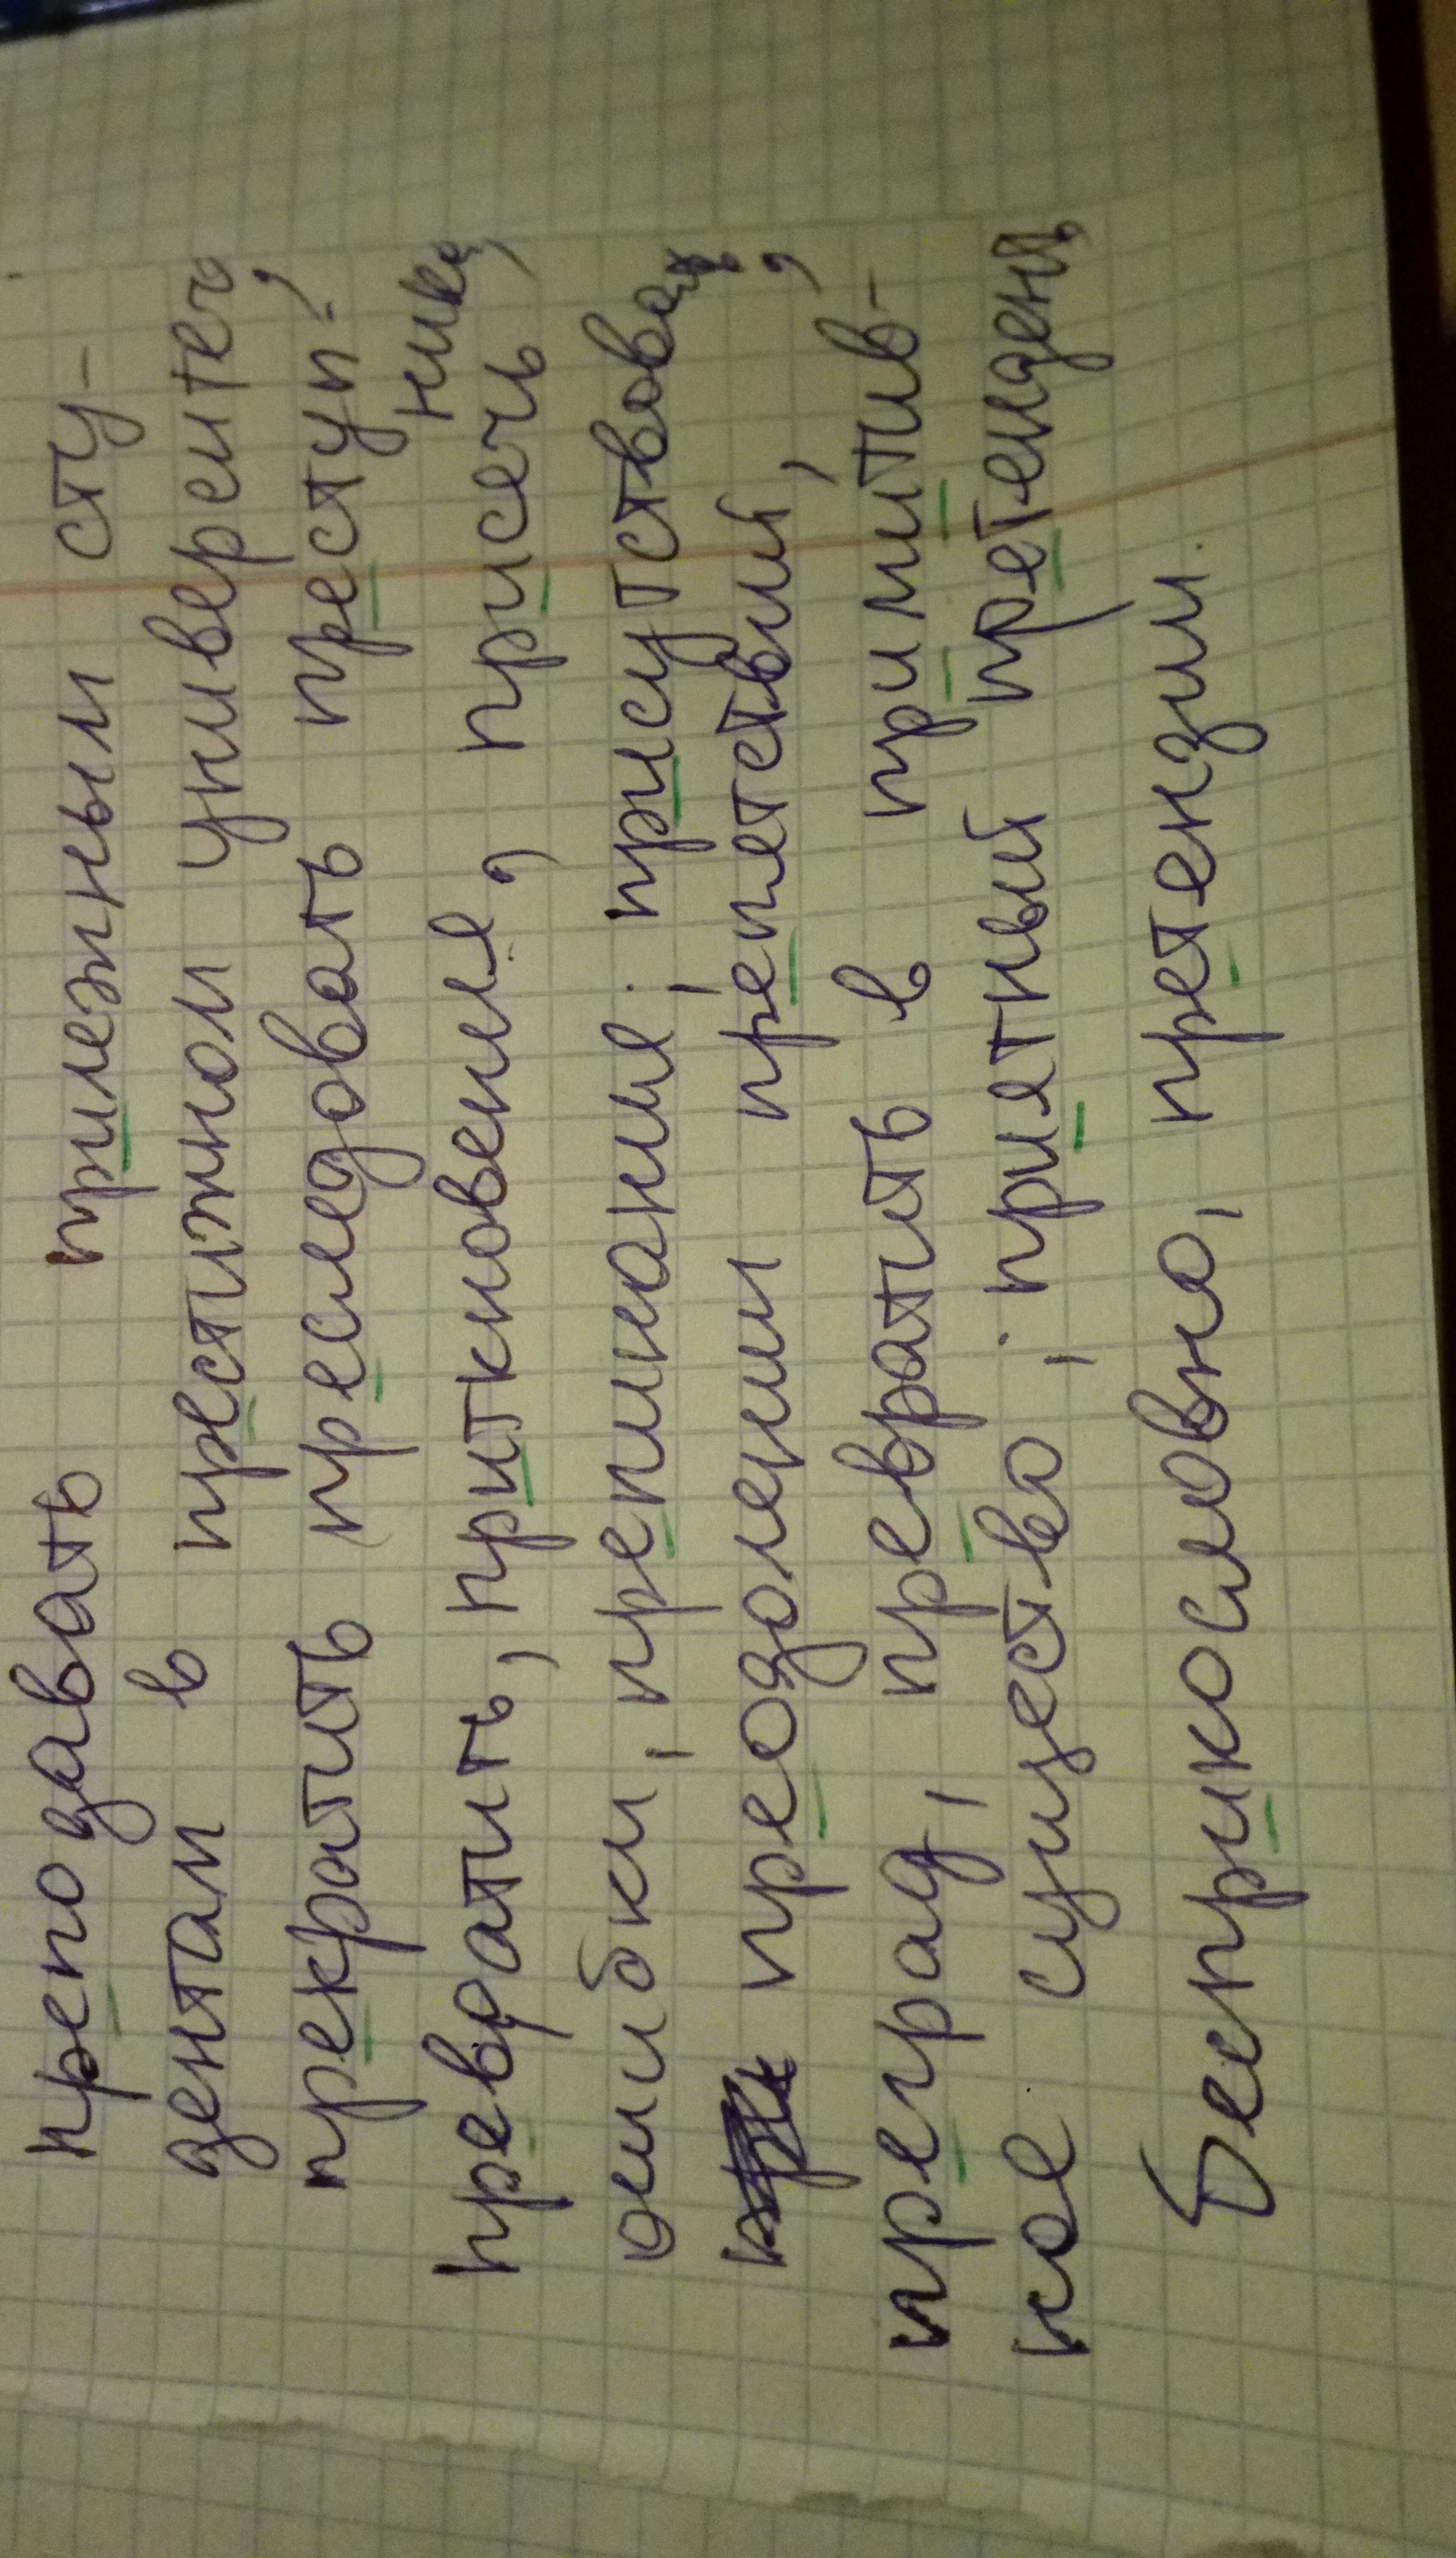 преподавать прилежным сту-
дентам в престижном универитете,
прекратить преследовать преступ-
ника,
превратить, приткновение, присечь
ошибки, препинание, присутствовать,
преодолении препетствий,
преград, превратить в примитив-
ное существо, приетный претендент,
Беспрекословно, претензии